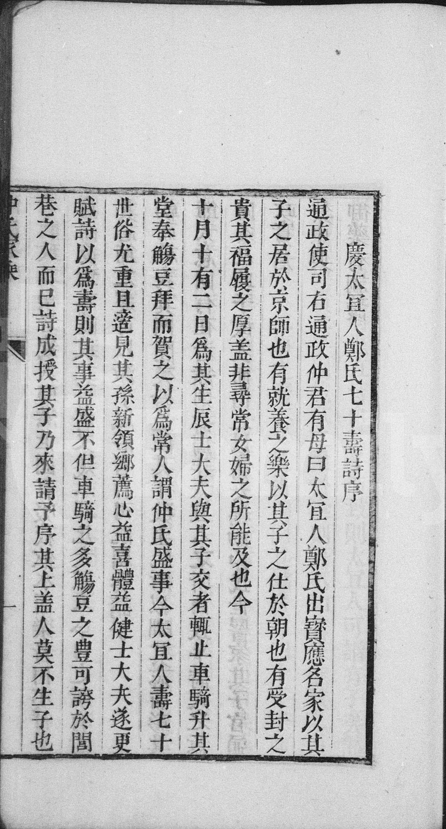 慶太宜人鄭氏七十壽詩序
通政使司右通政仲君有母曰太宜人鄭氏出寶應名家以其
子之居於京師也有就養之樂以其子之仕於朝也有受封之
貴其福履之厚盖非尋常女婦之所能及也今
十月十有二日爲其生辰士大夫與其子交者輒止車騎升其
堂奉觴豆拜而賀之以爲常人謂仲氏盛事今太宜人壽七十
世俗尤重且適見其孫新領鄉薦心益喜體益健士大夫遂更
賦詩以爲壽則其事益盛不但車騎之多觴豆之豊可誇於閭
巷之人而已詩成授其子乃來請予序其上盖人莫不生子也